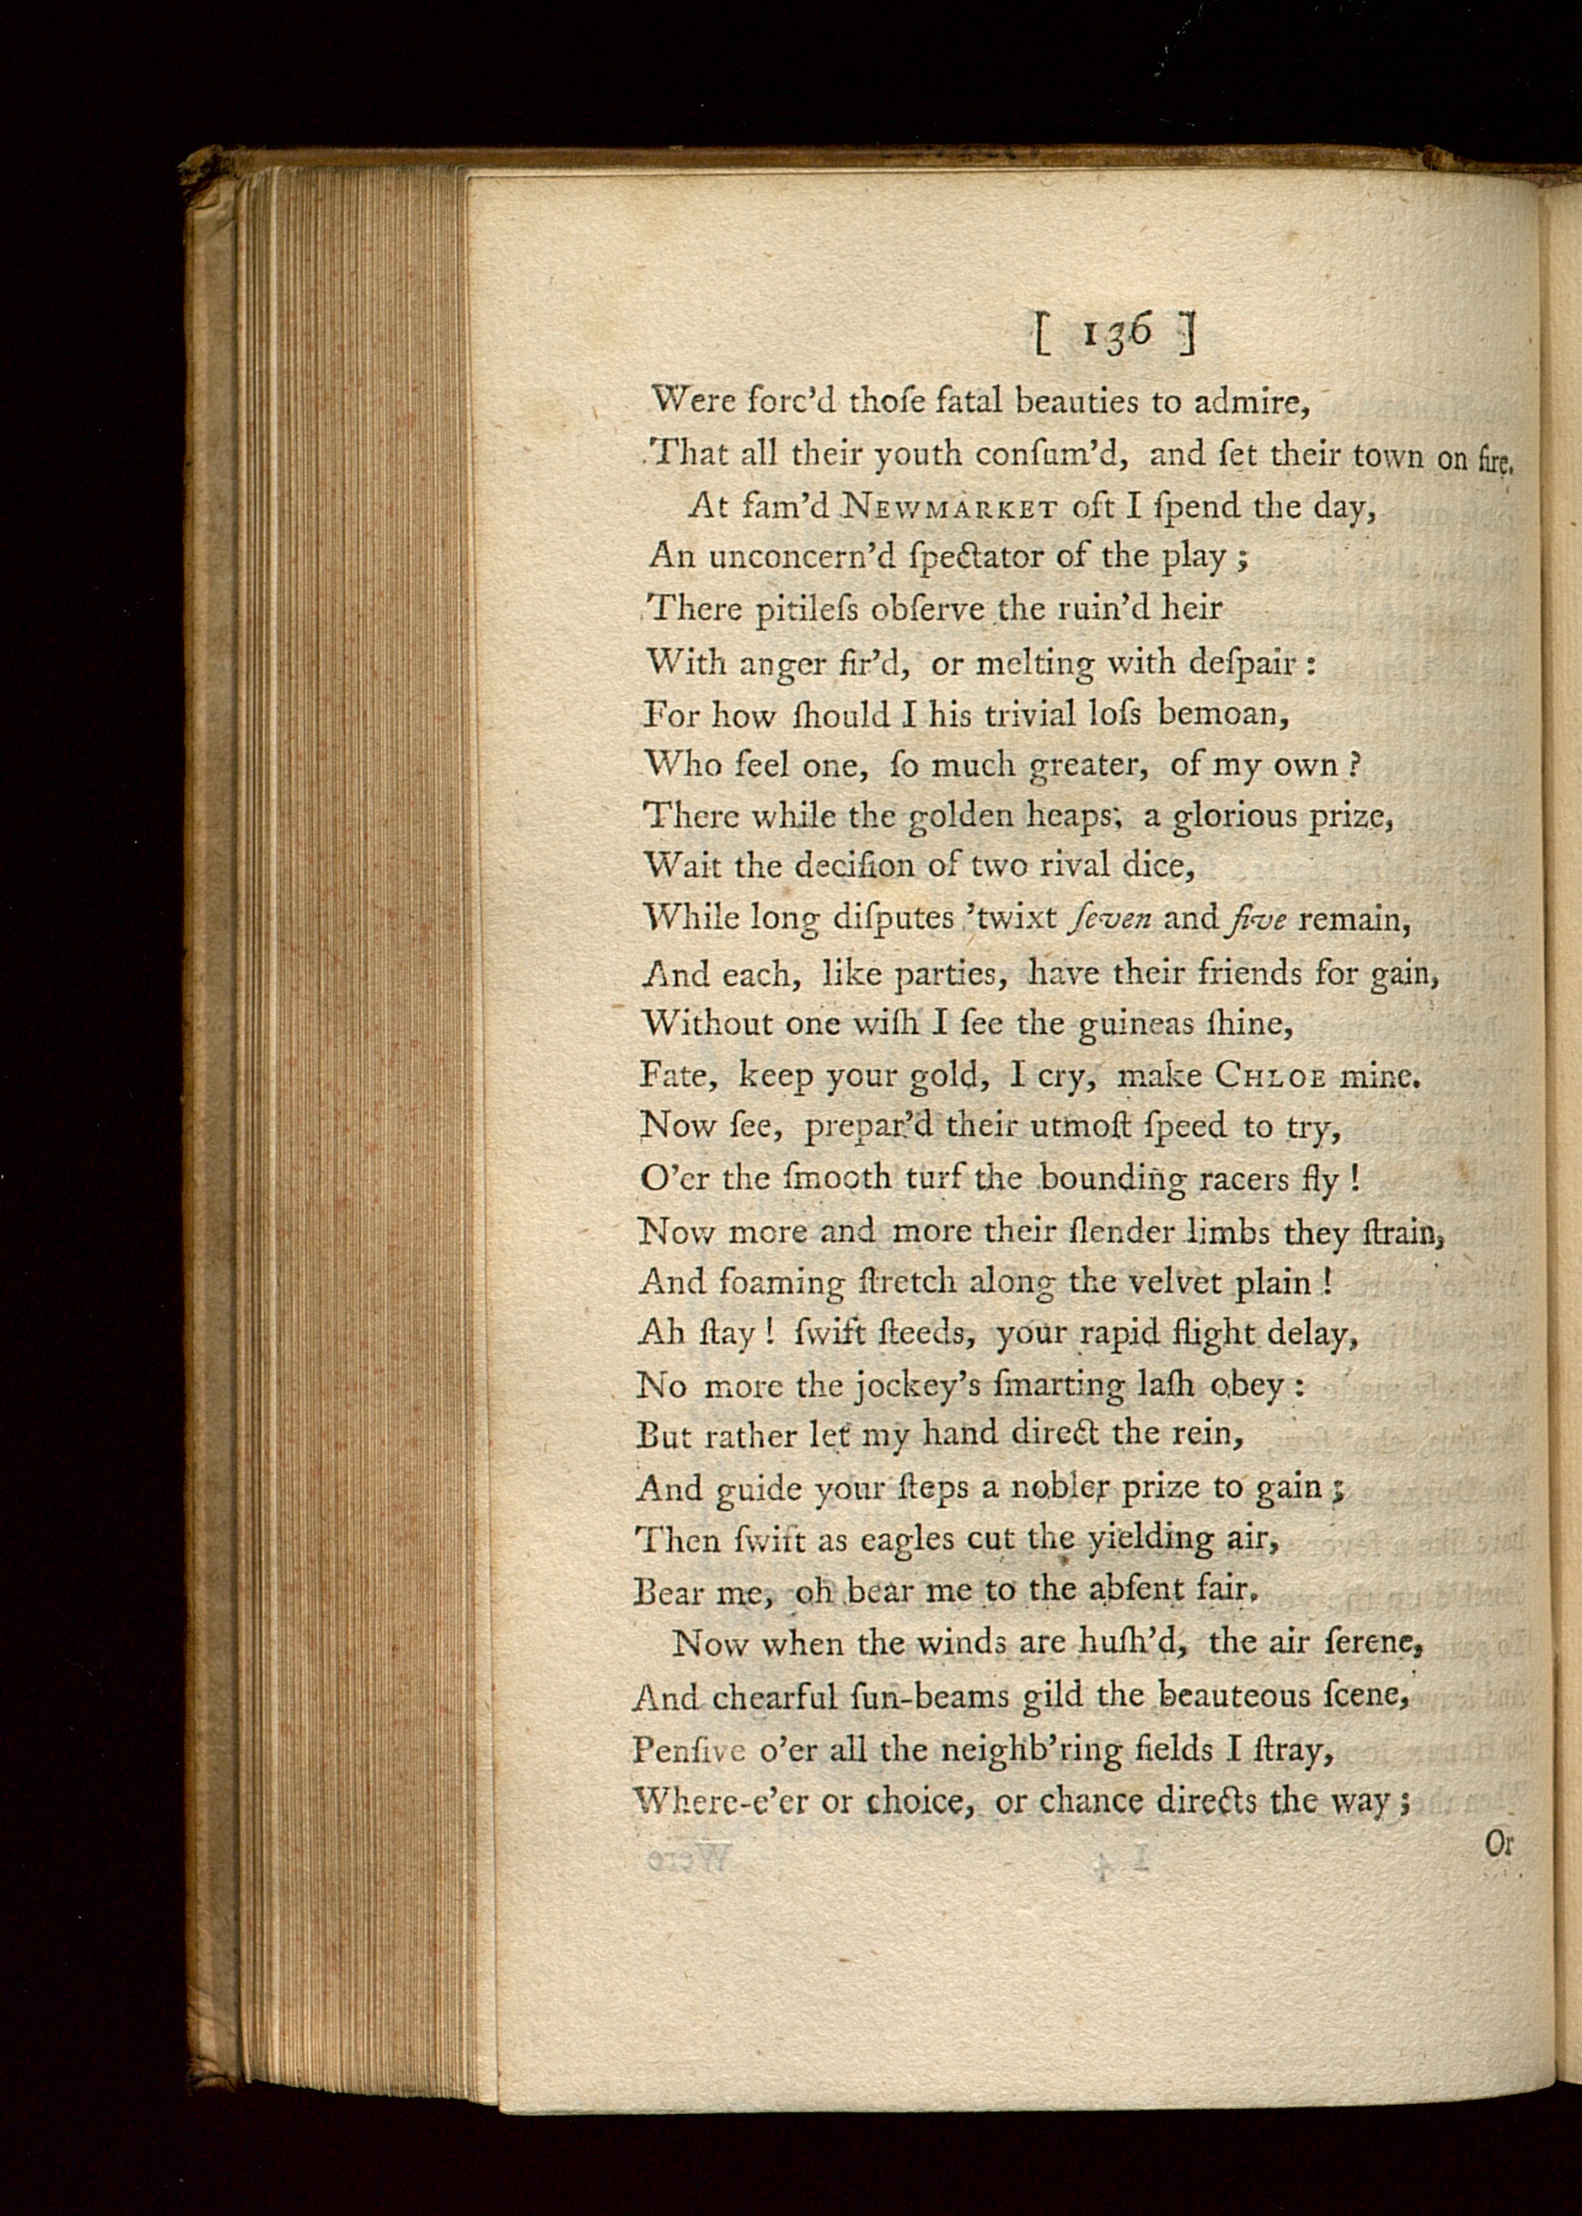 [ 136 ]
Were forc'd thoſe fatal beauties to admire,
That all their youth conſum'd, and ſet their town on fire.
At fam'd NEWMARKET oft I ſpend the day,
An unconcern'd ſpectator of the play ;
There pitileſs obſerve the ruin'd heir
With anger fir'd, or melting with deſpair :
For how ſhould I his trivial loſs bemoan,
Who feel one, ſo much greater, of my own ?
There while the golden heaps; a glorious prize,
Wait the deciſion of two rival dice,
While long diſputes 'twixt ſeven and five remain,
And each, like parties, have their friends for gain,
Without one wiſh I ſee the guineas ſhine,
Fate, keep your gold, I cry, make CHLOE mine.
Now ſee, prepar'd their utmoſt ſpeed to try,
O'er the ſmooth turf the bounding racers fly !
Now more and more their ſlender limbs they ſtrain,
And foaming ſtretch along the velvet plain !
Ah ſtay ! ſwift ſteeds, your rapid flight delay,
No more the jockey's ſmarting laſh obey :
But rather let my hand direct the rein,
And guide your ſteps a nobler prize to gain ;
Then ſwift as eagles cut the yielding air,
Bear me, oh bear me to the abſent fair.
Now when the winds are huſh'd, the air ſerene,
And chearful ſun-beams gild the beauteous ſcene,
Penſive o'er all the neighb'ring fields I ſtray,
Where-e'er or choice, or chance directs the way ;
Or